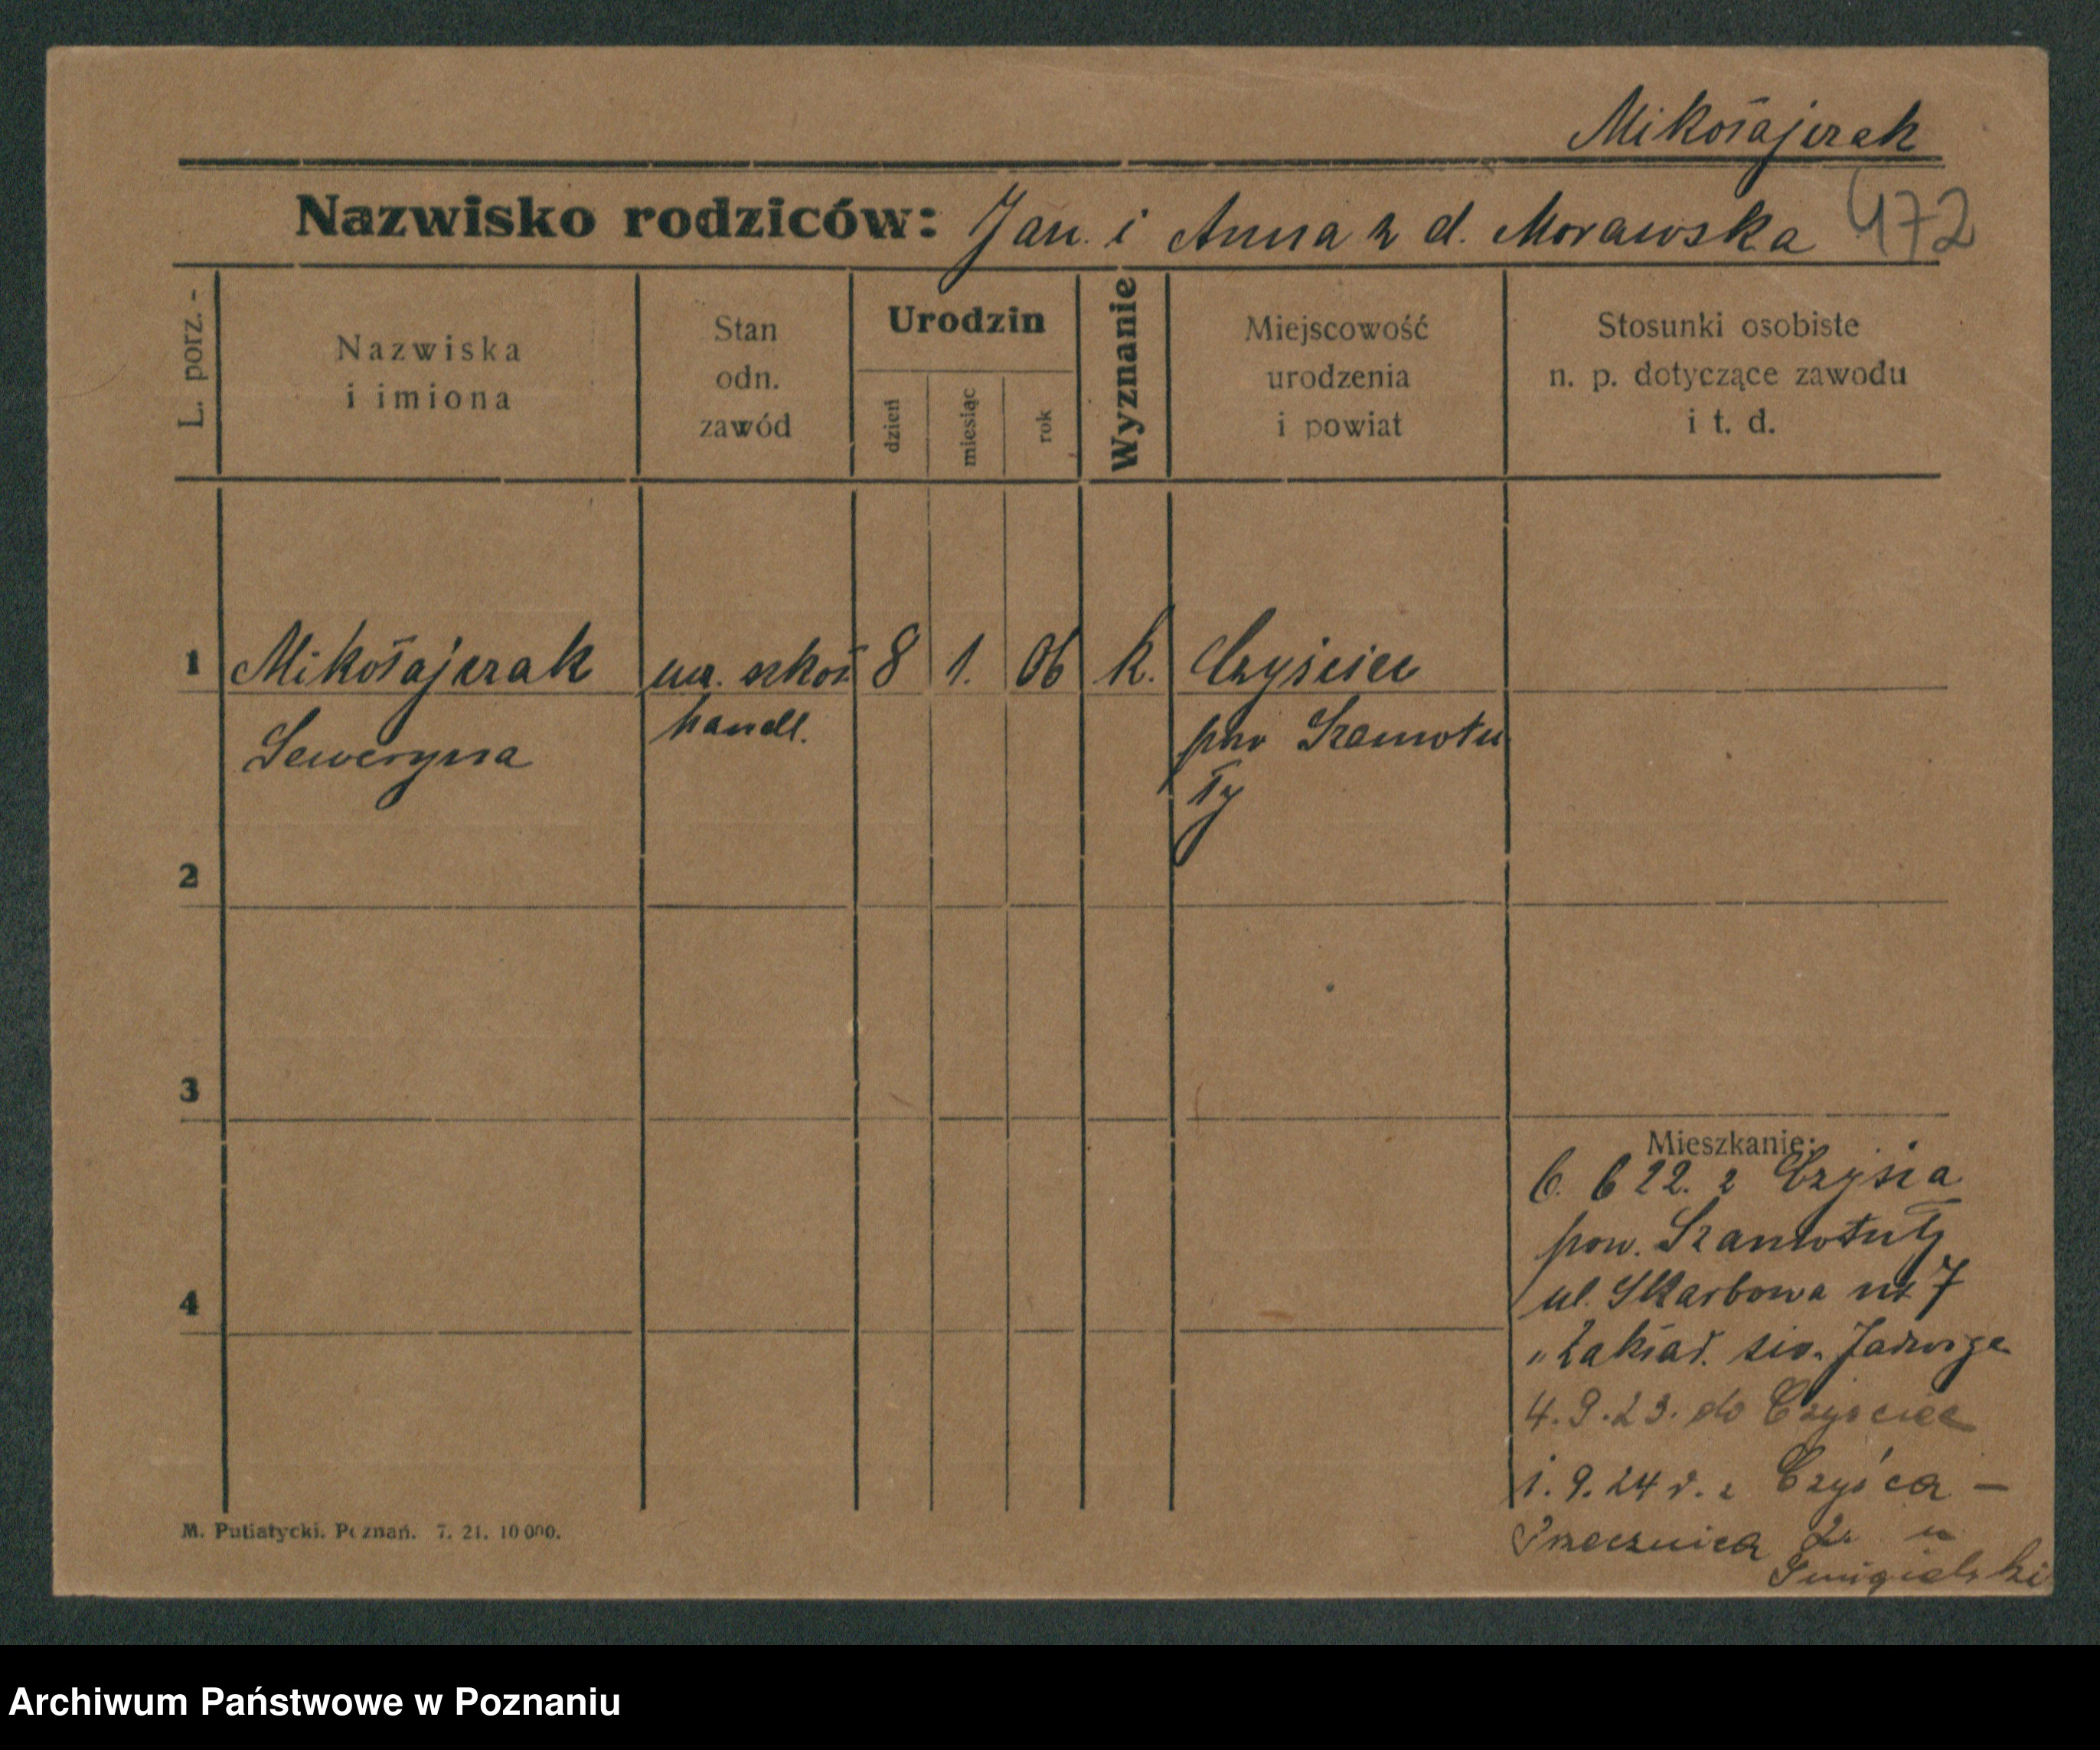 Mikołajczak
Nazwisko rodziców: Jan i Anna z d. Morawska 472
L. porz. -
Nazwiska
i imiona
Stan
odn.
zawód
Urodzin
dzień
miesiąc
rok
Wyznanie
Miejscowość
urodzenia
i powiat
Stosunki osobiste
n. p. dotyczące zawodu
i t. d.
1 Mikołajczak ucz. szkoł. 8 1. 06 k. Czyściec
Seweryna handl. pow Szamotu
ły
2
3
4
Mieszkanie:
6. 6 22. z
pow. Szamotuły
ul. Skarbowa nr 7
"Zakład. św. Jadwiga
4.9.23. do Czyściec
1.9.24 r. z Czyśca —
Przecznica 2. u
Śmigielski
M. Putiatycki. Poznań. 7. 21. 10 000.
Archiwum Państwowe w Poznaniu